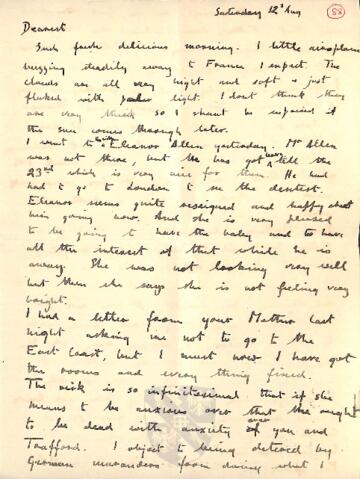 Saturday 12th Aug
88
Dearest
Such fresh delicious morning. 1 little aeroplane
buzzing steadily away to France I expect. The
clouds are all very bright and soft & just
flaked with light. I dont think they
are very thick so I shant be surprised if
the sun comes through later.
I went to Eleanor Allen yesterday. Mr Allen
was not there, but he has got leave till the
23rd which is very nice for them. He had
had to go to London to see the dentist.
Eleanor seems quite resigned and happy about
him going now. And she is very pleased
to be going to have the baby and to have
all the interest of that while he is
away. She was not looking very well
but then she says she is not feeling very
bright.
I had a letter from your Mother last
night asking me not to go to the
East Coast, but I must now I have got
the rooms and every thing fixed.
The risk is so infinitesimal that if she
means to be anxious over that she ought
to be dead with anxiety over you and
Trafford. I object to being deterred by
German marauders from doing what I